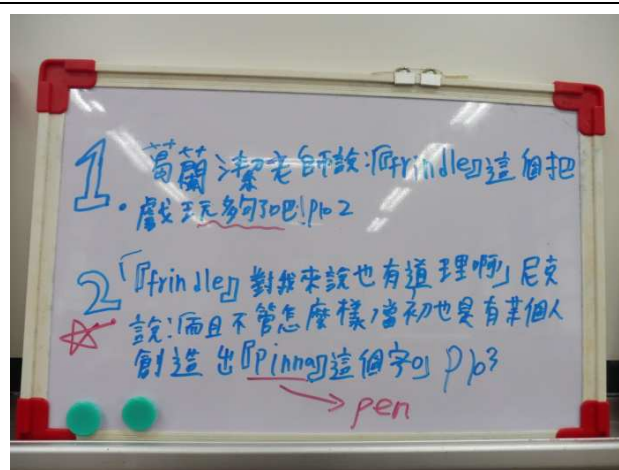 1. 葛蘭潔老師說:「『frindle』這個把
戲玩多夠了吧!p102
2 「『frindle』對我來說也有道理啊」尼克
說:「而且不管怎麼樣,當初也是有某個人
創造出『pinna』這個字。」p103
pen